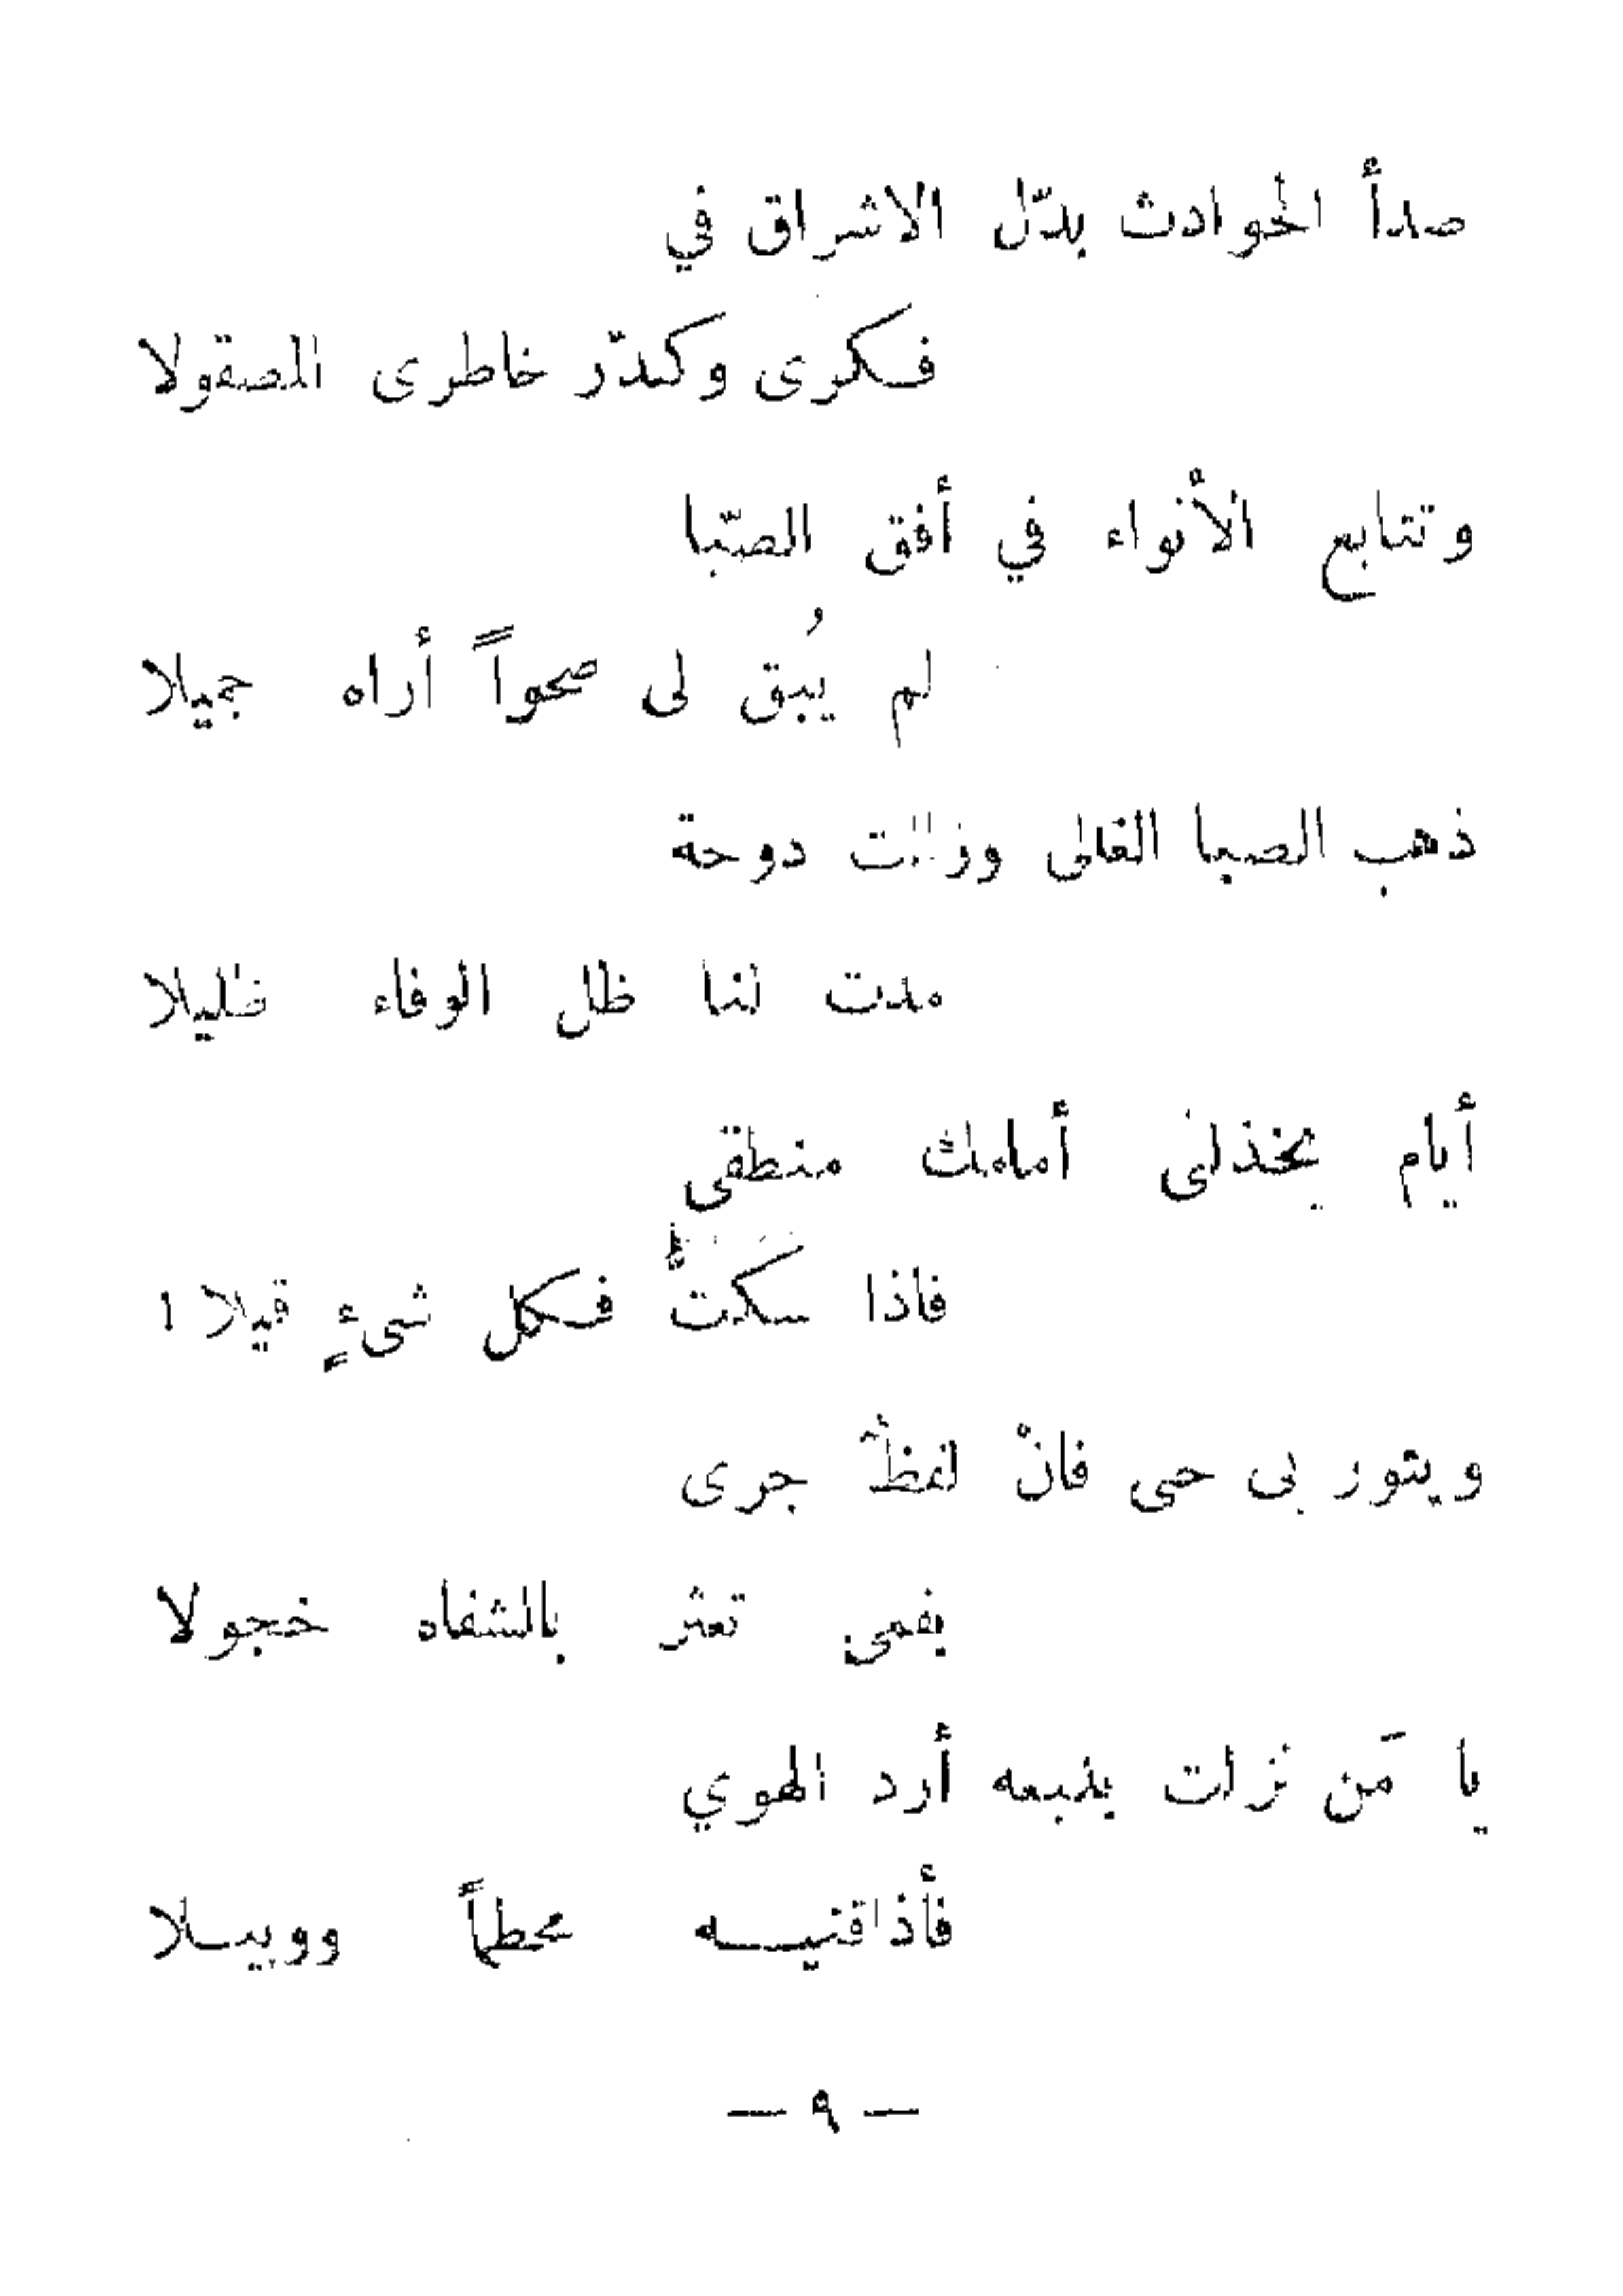 صدأ الحوادث بدّل الاشراق في
فكرى وكدّر خاطرى المصقولا
وتتابع الأنواء في أفق الصّبا
لم يُبق لى صحواً أراه جميلا
ذهب الصبا الغالى وزالت دوحة
مدت لنا ظل الوفاء ظليلا
أيام يخذلنى أمامك منطقى
فاذا سكتُّ فكل شىءٍ قيلا !
ويثور بى حبى فانْ لفظٌ جرى
بفمى تعثر بالشفاه خجولا
يا مَن نزلت بنبعه أرد الهوي
فأذاقنيه محطماً ووبيلا
— ٩ —